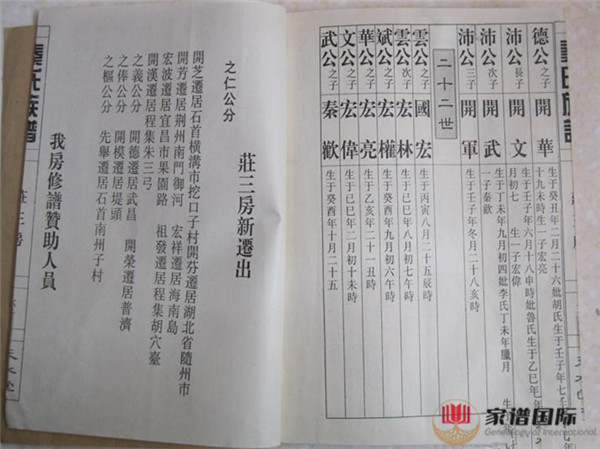 德公之子 開華 生于癸丑年二月二十六妣胡氏生于壬子年七
十九未時生一子宏亮
沛公長子 開文 生于壬子年六月十八申時妣魯氏生于乙巳年
月初七 生一子宏偉
沛公次子 開武 生于丁未年九月初四妣李氏丁未年臘月
一子秦歡
沛公三子 開軍 生于壬子年冬月二十八亥時
二十二世
雲公之子 國宏 生于丙寅八月二十五辰時
雲公次子 宏林 生于己巳年八月初七午時
斌公之子 宏權 生于癸酉年九月初六午時
華公之子 宏亮 生于乙亥年二十一丑時
文公之子 宏偉 生于己巳年二月初十未時
武公之子 秦歡 生于癸酉年十月二十五
龔氏族譜
莊三房
莊三房新遷出
之仁公分
開芝遷居石首橫溝市挖口子村開芬遷居湖北省隨州市
開芳遷居荆州南門御河 宏祥遷居海南島
宏波遷居宜昌市果園路 祖發遷居程集胡穴臺
開漢遷居程集朱三弓
之義公分 開德遷居武昌 開榮遷居普濟
之俸公分 開模遷居堤頭
之樞公分 先舉遷居石首南州子村
我房修譜贊助人員
家谱国际
Genealogy of International